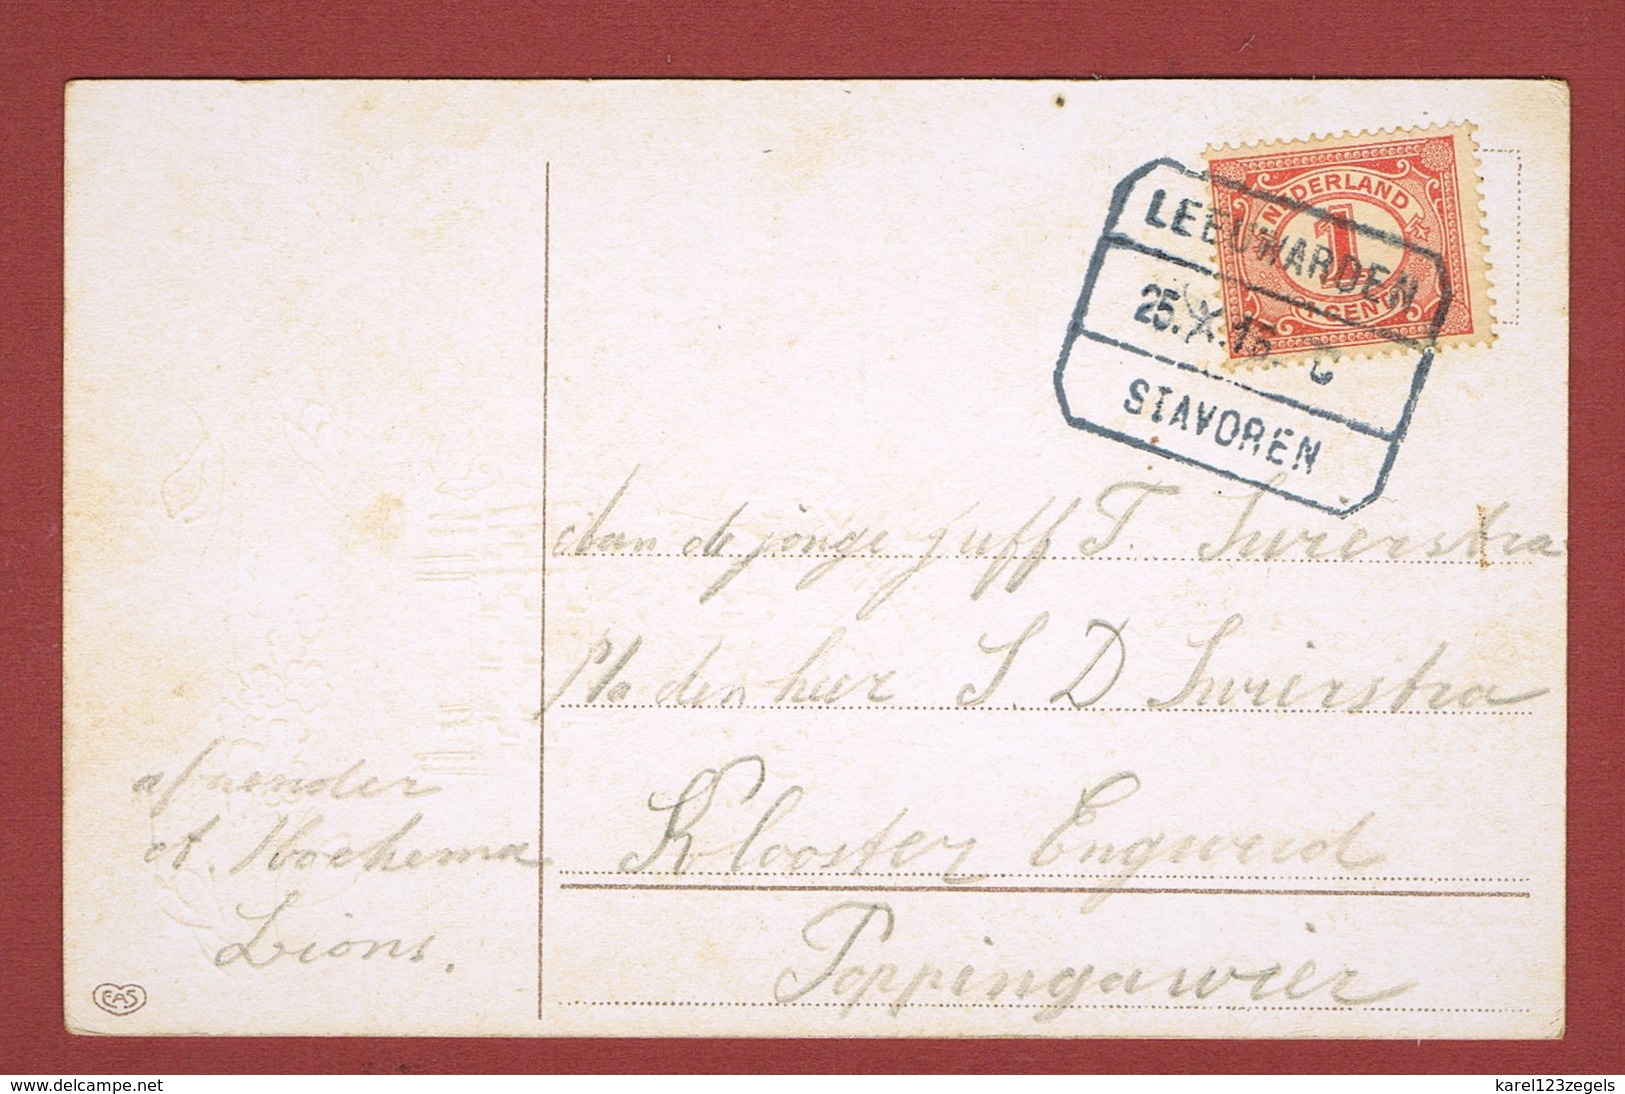 NEDERLAND
1
1 CENT
LEEUWARDEN
25.X.15. C
STAVOREN
Aan de jonge juff T. Swierstra
p/a den heer S. D Swierstra
Klooster Engwerd
Poppingawier
afzender
A. Hoekema
Lions.
EAS
www.delcampe.net
karel123zegels